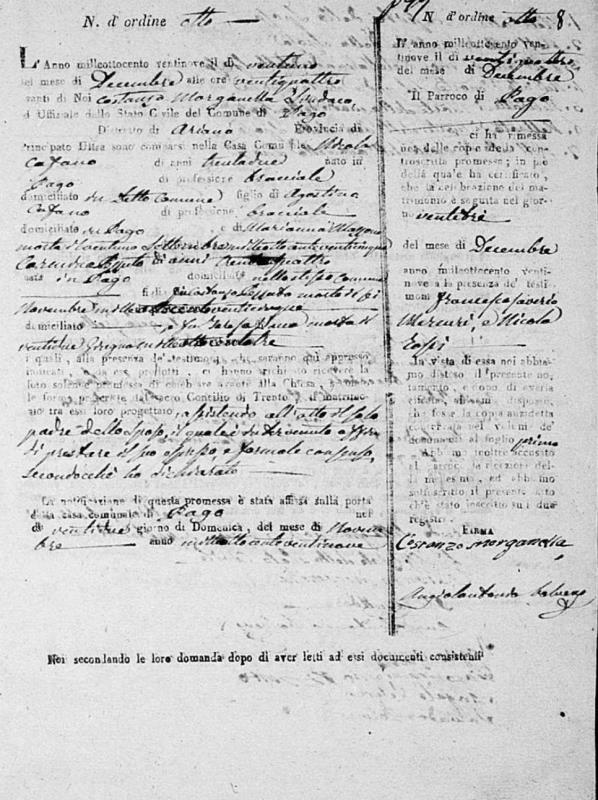 N. d'ordine otto
L'Anno milleottocento ventinove il dì ventuno
del mese di Decembre alle ore ventiquattro
vanti di Noi Costanzo Morganella Sindaco
d Uffiziale dello Stato Civile del Comune di Pago
Distretto di Ariano Provincia di
Principato Ultra sono comparsi nella Casa Comunale Nicola
Catano di anni trentadue nato in
Pago di professione bracciale
domiciliato in detto Comune figlio di Agostino
Catano di professione bracciale
domiciliato in Pago e di Marianna
morta Settembre milleottocentoventicinque
di anni trentaquattro
nata in Pago domiciliata nello stesso Comune
figlia morto
Novembre
domiciliato e di Teresa morta a
ventidue Giugno
i quali, alla presenza de' testimonj che saranno qui appresso
indicati, e da essi prodotti, ci hanno richiesto ricevere la
loro solenne promessa di celebrare avanti alla Chiesa,
le forme prescritte dal sacro Concilio di Trento il matrimo-
nio tra essi loro progettato, assistendo all'atto il solo
padre dello sposo, il quale è intervenuto affin
di prestare il suo espresso, e formale consenso,
secondocchè ha dichiarato
La notificazione di questa promessa è stata affissa sulla porta
della casa comunale di Pago nel
dì ventidue giorno di Domenica, del mese di Novem
bre anno milleottocentoventinove
Noi secondando le loro domanda dopo di aver letti ad essi documenti consistenti
N. d'ordine otto 8
L'anno milleottocento ven-
tinove il dì ventiquattro
del mese di Decembre
Il Parroco di Pago
ci ha rimessa
una delle copie della con-
troscritta promessa; in piè
della quale ha certificato,
che la celebrazione del ma-
trimonio è seguita nel gior-
no ventitrè
del mese di Decembre
anno milleottocento venti-
nove a la presenza de' testi-
monj Francesco Saverio
Mercuri, e Nicola
In vista di essa noi abbia-
mo disteso il presente no-
tamento, e dopo di averla
cifrata, abbiamo disposto
che fosse la copia anzidetta
conservata nel volume de'
documenti al foglio primo
Abbiamo inoltre accusato
al parroco la ricezione del-
la medesima, ed abbiamo
sottoscritto il presente atto
ch'è stato inscritto sui due
registri.
FIRMA
Costanzo Morganella